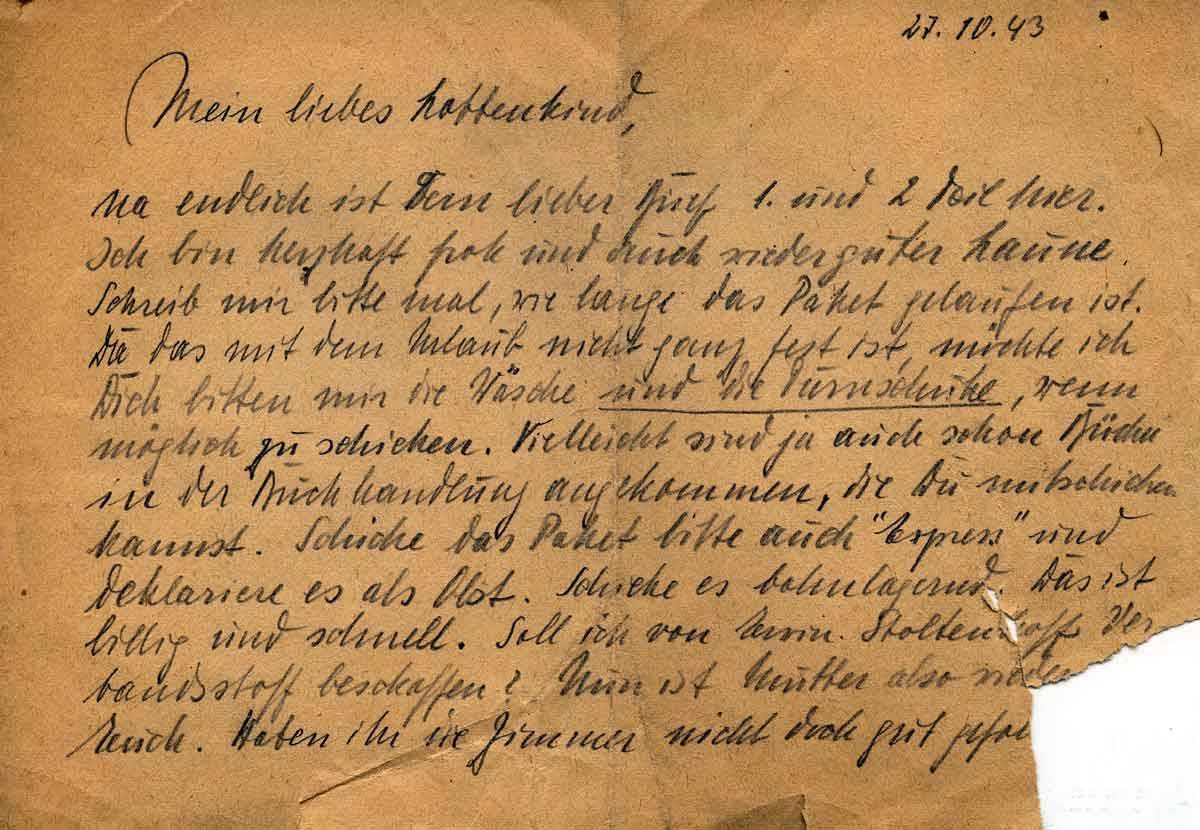 27.10.43
Mein liebes Lottenkind,
na endlich ist Dein lieber Brief 1. und 2 Teil hier.
Ich bin herzhaft froh und auch wieder guter Laune.
Schreib mir bitte mal, wie lange das Paket gelaufen ist.
Da das mit dem Urlaub nicht ganz fest ist, möchte ich
Dich bitten mir die Wäsche und die Turnschuhe, wenn
möglich zu schicken. Vielleicht sind ja auch schon Bücher
in der Buchhandlung angekommen, die Du mitschicken
kannst. Schicke das Paket bitte auch "Express" und
deklariere es als Obst. Schicke es bahnlagernd. Das ist
billig und schnell. Soll ich von Erwin Stoltenhoff Ver
bandsstoff beschaffen? Nun ist Mutter also wieder
Euch. Haben ihr die Zimmer nicht doch gut